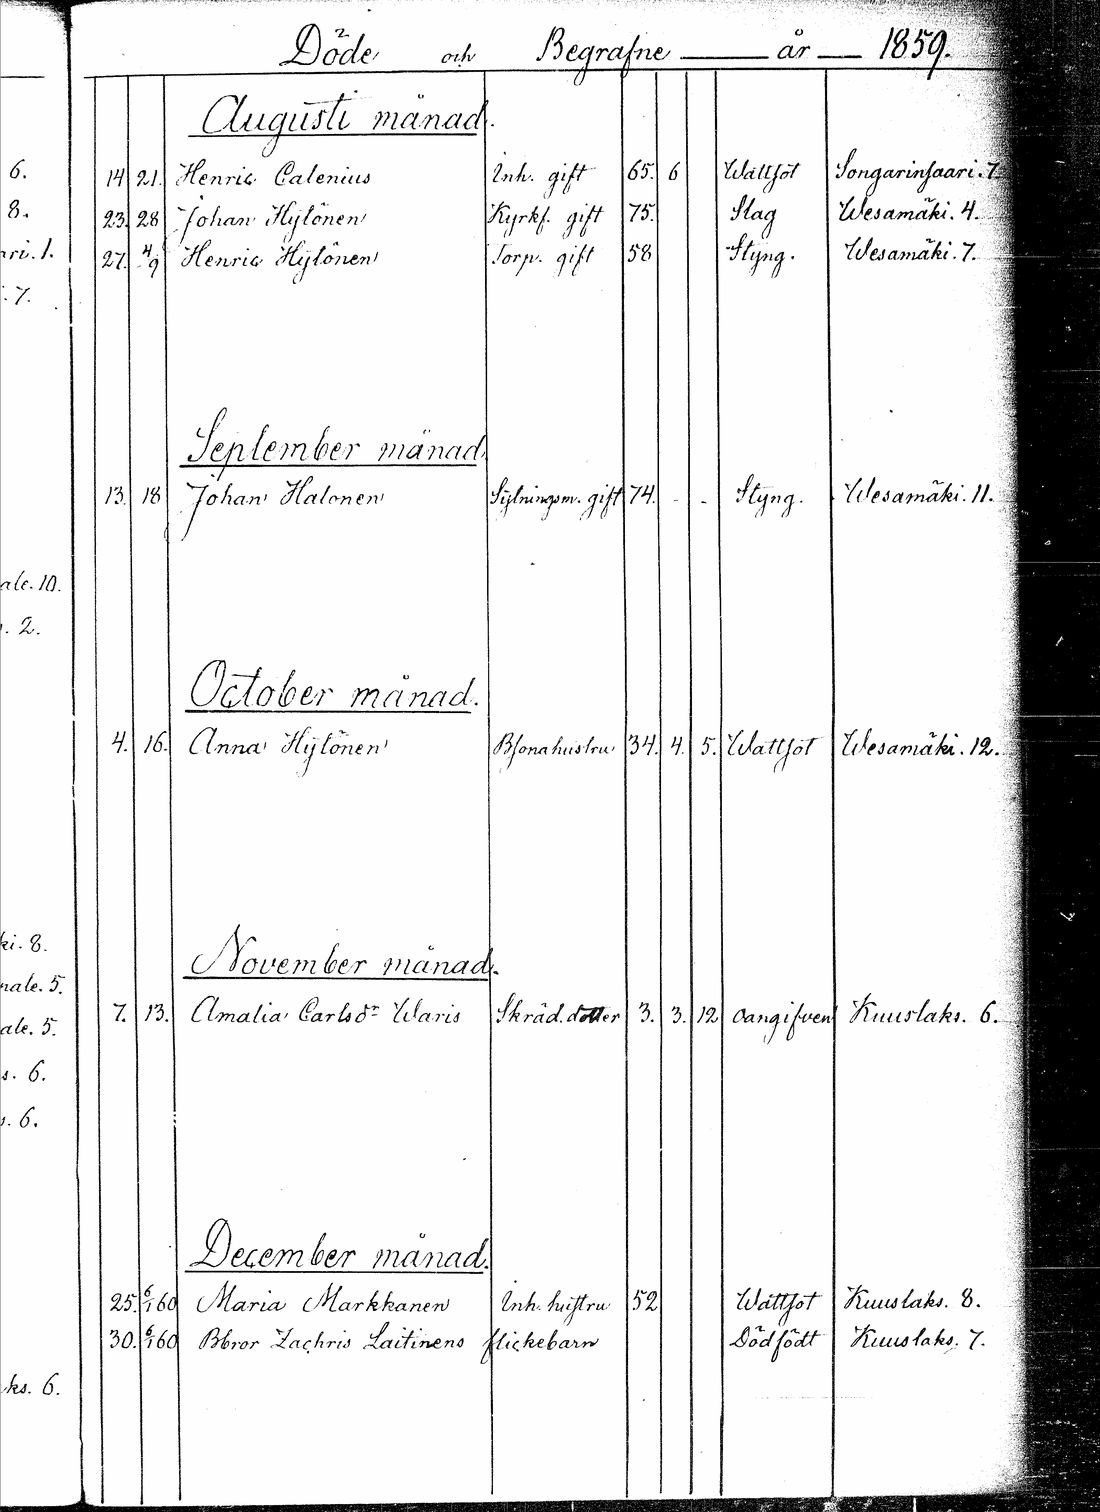 Döde och Begrafne år 1859.
Augusti månad.
6.
14 21. Henric Calenius Inh. gift 65. 6 Wattsot Songarinsaari. 7.
8.
23. 28 Johan Hytönen Kyrkf. gift 75. Slag Wesamäki. 4.
ari. 1.
27. 4/9 Henric Hytönen Torp. gift 58 Styng. Wesamäki. 7.
. 7.
September månad.
13. 18 Johan Halonen Sytningsm. gift 74. - - Styng. Wesamäki. 11.
ale. 10.
. 2.
October månad.
4. 16. Anna Hytönen Bsonahustru 34. 4. 5. Wattsot Wesamäki. 12.
ki. 8.
November månad.
nale. 5.
7. 13. Amalia Carlsdr Waris Skräd. dotter 3. 3. 12 oangifven Kuuslaks. 6.
ale. 5.
s. 6.
s. 6.
December månad.
25. 6/1 60 Maria Markkanen Inh. hustru 52 Wattsot Kuuslaks. 8.
30. 6/1 60 Bbror Zachris Laitinens flickebarn Dödfödt Kuuslaks. 7.
ks. 6.